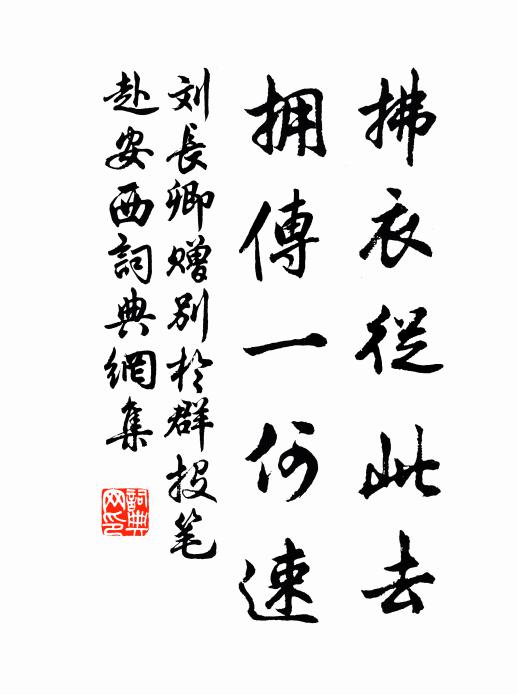 拂衣從此去
拥傳一何速
刘長卿赠别於群投笔
赴安西詞典網集
詞典网印